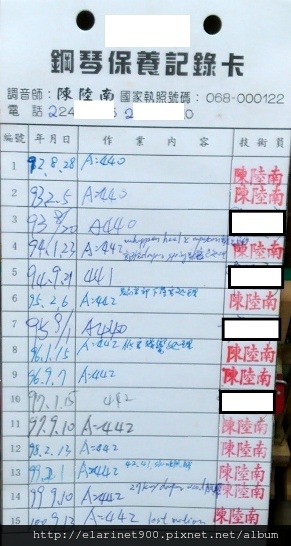 鋼琴保養記錄卡
調音師：陳陸南 國家執照號碼：068-000122
電話 224 2 0
編號 年月日 作業內容 技術員
1 92.8.28 A=440 陳陸南
2 93.2.5 A=440 陳陸南
3 93 8/20 A440
4 94.1.23 A=442 陳陸南
5 94.9.21 441
6 95.2.6 A=442 陳陸南
7 95 9/1 A=440
8 96.1.15 A=442 陳陸南
9 96.9.7 A=442 陳陸南
10 97.1.15 442
11 97.9.10 A=442 陳陸南
12 98.2.13 A=442 陳陸南
13 99.2.1 A=442 陳陸南
14 99.9.10 A=442 陳陸南
15 100.9.12 A=442 lost motion 陳陸南
http://elarinet900.pixnet.net/album